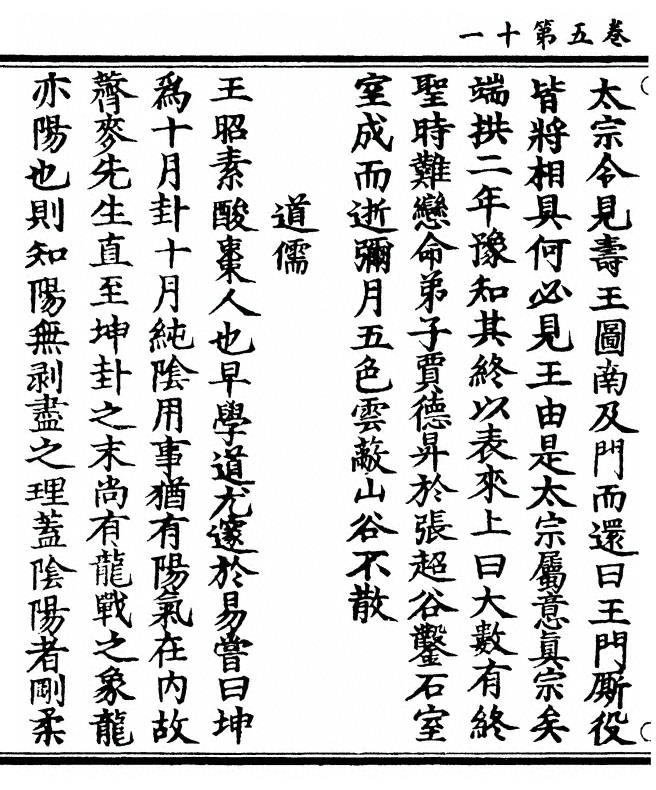 卷五第十一
太宗令見壽王圖南及門而還曰王門厮役
皆將相具何必見王由是太宗屬意真宗矣
端拱二年豫知其終以表來上曰大數有終
聖時難戀命弟子賈德昇於張超谷鑿石室
室成而逝彌月五色雲蔽山谷不散
道儒
王昭素酸棗人也早學道尤邃於易嘗曰坤
爲十月卦十月純陰用事猶有陽氣在内故
薺麥先生直至坤卦之末尚有龍戰之象龍
亦陽也則知陽無剥盡之理蓋陰陽者剛柔